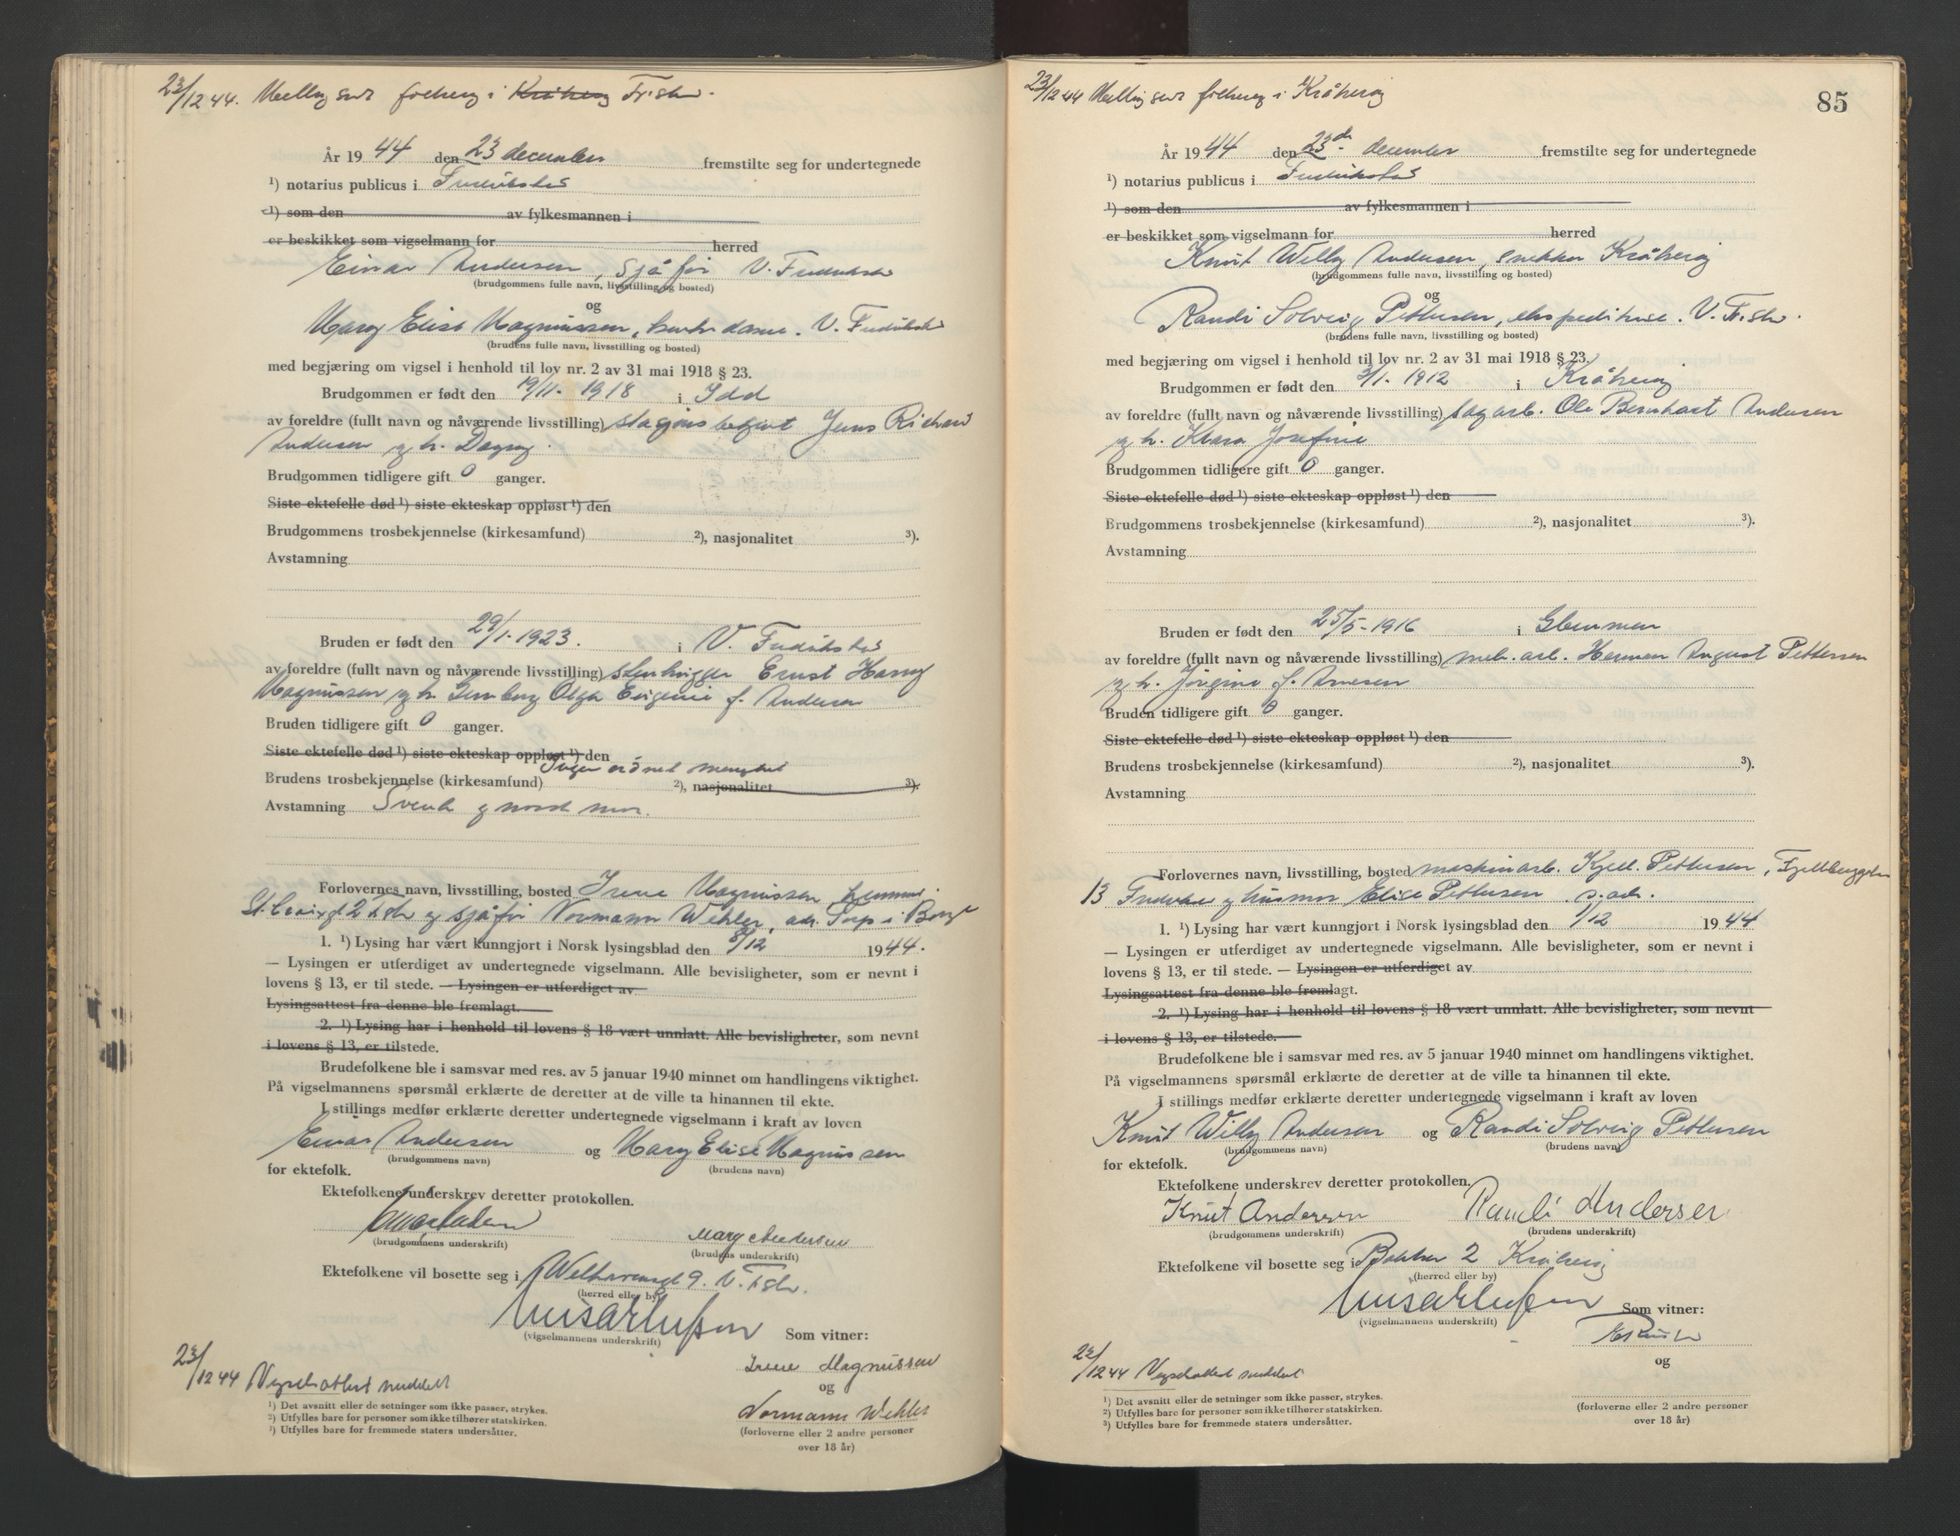 23/12 44. Melding sendt folkereg i Kråkerøy Fr.stad.
År 1944 den 23 december fremstilte seg for undertegnede
¹) notarius publicus i Fredrikstad
¹) som den av fylkesmannen i
er beskikket som vigselmann for herred
Einar Andersen, sjåfør V. Fredrikstad
(brudgommens fulle navn, livsstilling og bosted)
og
Mary Elise Magnussen, kontordame. V. Fredrikstad
(brudens fulle navn, livsstilling og bosted)
med begjæring om vigsel i henhold til lov nr. 2 av 31 mai 1918 § 23.
Brudgommen er født den 19/11-1918 i Idd
av foreldre (fullt navn og nåværende livsstilling) stasjonsbetjent Jens Richard
Andersen og h. Dagny.
Brudgommen tidligere gift 0 ganger.
Siste ektefelle død ¹) siste ekteskap oppløst ¹) den
Brudgommens trosbekjennelse (kirkesamfund) ²), nasjonalitet ³).
Avstamning
Bruden er født den 29/1-1923. i V. Fredrikstad
av foreldre (fullt navn og nåværende livsstilling) stenhugger Ernst Harry
Magnussen og h. Olga Eugenie f. Andersen
Bruden tidligere gift 0 ganger.
Siste ektefelle død ¹) siste ekteskap oppløst ¹) den
Brudens trosbekjennelse (kirkesamfund) Ingen ordnet menighet ²), nasjonalitet ³).
Avstamning Svensk og nordmenn.
Forlovernes navn, livsstilling, bosted Irene Magnussen hjemme.
St. Croixgt 2 F.stad og sjåfør Normann Wehler, adr. Torp i Borge
1. ¹) Lysing har vært kunngjort i Norsk lysingsblad den 8/12 1944.
— Lysingen er utferdiget av undertegnede vigselmann. Alle bevisligheter, som er nevnt i
lovens § 13, er til stede. — Lysingen er utferdiget av
Lysingsattest fra denne ble fremlagt.
2. ¹) Lysing har i henhold til lovens § 18 vært unnlatt. Alle bevisligheter, som nevnt
i lovens § 13, er tilstede.
Brudefolkene ble i samsvar med res. av 5 januar 1940 minnet om handlingens viktighet.
På vigselmannens spørsmål erklærte de deretter at de ville ta hinannen til ekte.
I stillings medfør erklærte deretter undertegnede vigselmann i kraft av loven
Einar Andersen og Mary Elise Magnussen
(brudgommens navn) (brudens navn)
for ektefolk.
Ektefolkene underskrev deretter protokollen.
Einar Andersen Mary Andersen
(brudgommens underskrift) (brudens underskrift)
Ektefolkene vil bosette seg i Welhavensgt 9. V. F.stad.
(herred eller by)
(vigselmannens underskrift) Som vitner:
23/12 44 Vigselsattest meddelt
Irene Magnussen
og
Normann Wehler
(forloverne eller 2 andre personer
over 18 år)
¹) Det avsnitt eller de setninger som ikke passer, strykes.
²) Utfylles bare for personer som ikke tilhører statskirken.
³) Utfylles bare for fremmede staters undersåtter.
85
23/12 44 Melding sendt folkereg i Kråkerøy
År 1944 den 23de december fremstilte seg for undertegnede
¹) notarius publicus i Fredrikstad
¹) som den av fylkesmannen i
er beskikket som vigselmann for herred
Knut Willy Andersen, snekker Kråkerøy
(brudgommens fulle navn, livsstilling og bosted)
og
Randi Solveig Pettersen, ekspeditrise. V. Fr.stad.
(brudens fulle navn, livsstilling og bosted)
med begjæring om vigsel i henhold til lov nr. 2 av 31 mai 1918 § 23.
Brudgommen er født den 3/1-1912 i Kråkerøy
av foreldre (fullt navn og nåværende livsstilling) sagarb. Ole Bernhart Andersen
og h. Klara Josefine
Brudgommen tidligere gift 0 ganger.
Siste ektefelle død ¹) siste ekteskap oppløst ¹) den
Brudgommens trosbekjennelse (kirkesamfund) ²), nasjonalitet ³).
Avstamning
Bruden er født den 25/5-1916 i Glemmen
av foreldre (fullt navn og nåværende livsstilling) mek. arb. Herman August Pettersen
og h. Jørgine f. Arnesen
Bruden tidligere gift 0 ganger.
Siste ektefelle død ¹) siste ekteskap oppløst ¹) den
Brudens trosbekjennelse (kirkesamfund) ²), nasjonalitet ³).
Avstamning
Forlovernes navn, livsstilling, bosted maskinarb. Kjell Pettersen, Fjellberggaten
13 Fredrikstad og husmor Elise Pettersen s. adr.
1. ¹) Lysing har vært kunngjort i Norsk lysingsblad den 1/12 1944
— Lysingen er utferdiget av undertegnede vigselmann. Alle bevisligheter, som er nevnt i
lovens § 13, er til stede. — Lysingen er utferdiget av
Lysingsattest fra denne ble fremlagt.
2. ¹) Lysing har i henhold til lovens § 18 vært unnlatt. Alle bevisligheter, som nevnt
i lovens § 13, er tilstede.
Brudefolkene ble i samsvar med res. av 5 januar 1940 minnet om handlingens viktighet.
På vigselmannens spørsmål erklærte de deretter at de ville ta hinannen til ekte.
I stillings medfør erklærte deretter undertegnede vigselmann i kraft av loven
Knut Willy Andersen og Randi Solveig Pettersen
(brudgommens navn) (brudens navn)
for ektefolk.
Ektefolkene underskrev deretter protokollen.
Knut Andersen Randi Andersen
(brudgommens underskrift) (brudens underskrift)
Ektefolkene vil bosette seg i Bakken 2 Kråkerøy
(herred eller by)
(vigselmannens underskrift) Som vitner:
og
23/12 44 Vigselsattest meddelt
(forloverne eller 2 andre personer
over 18 år)
¹) Det avsnitt eller de setninger som ikke passer, strykes.
²) Utfylles bare for personer som ikke tilhører statskirken.
³) Utfylles bare for fremmede staters undersåtter.